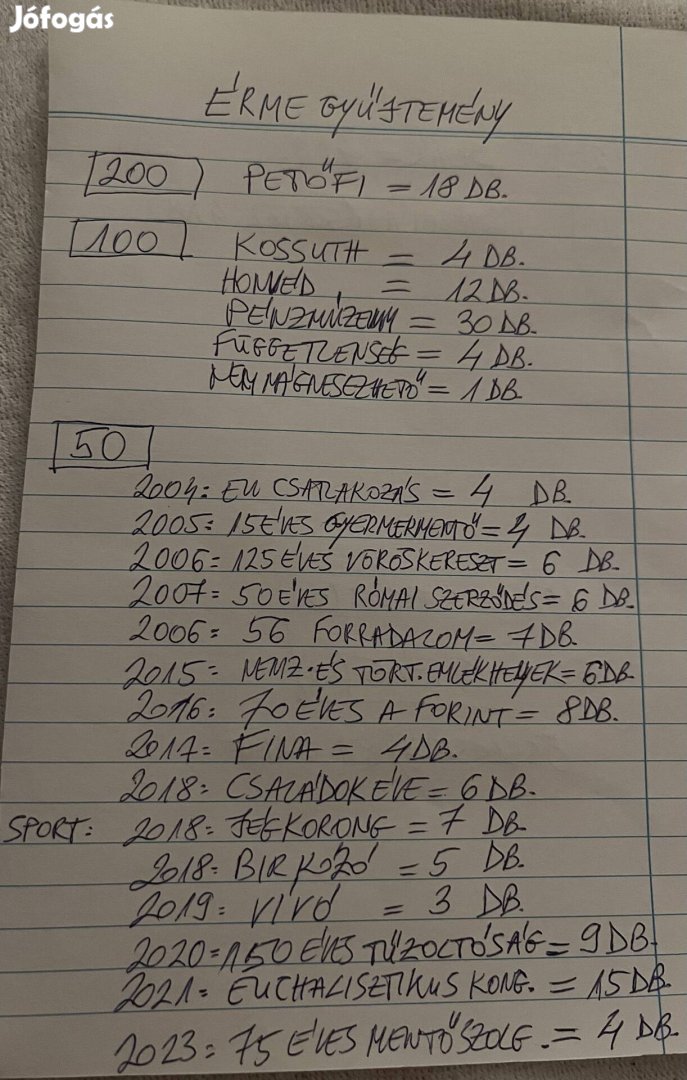 Jófogás
ÉRME GYŰJTEMÉNY
200 PETŐFI = 18 DB.
100 KOSSUTH = 4 DB.
HONVÉD = 12 DB.
PÉNZMÚZEUM = 30 DB.
FÜGGETLENSÉG = 4 DB.
NEM MÁGNESEZHETŐ = 1 DB.
50
2004: EU CSATLAKOZÁS = 4 DB.
2005: 15 ÉVES GYERMERMENTŐ = 4 DB.
2006: 125 ÉVES VÖRÖSKERESZT = 6 DB.
2007: 50 ÉVES RÓMAI SZERZŐDÉS = 6 DB.
2006: 56 FORRADALOM = 7 DB.
2015: NEMZ. ÉS TÖRT. EMLÉKHELYEK = 6 DB.
2016: 70 ÉVES A FORINT = 8 DB.
2017: FINA = 4 DB.
2018: CSALÁDOK ÉVE = 6 DB.
SPORT: 2018: JÉGKORONG = 7 DB.
2018: BIRKÓZÓ = 5 DB.
2019: VÍVÓ = 3 DB.
2020: 150 ÉVES TŰZOLTÓSÁG = 9 DB.
2021: EUCHALISZTIKUS KONG. = 15 DB.
2023: 75 ÉVES MENTŐSZOLG. = 4 DB.